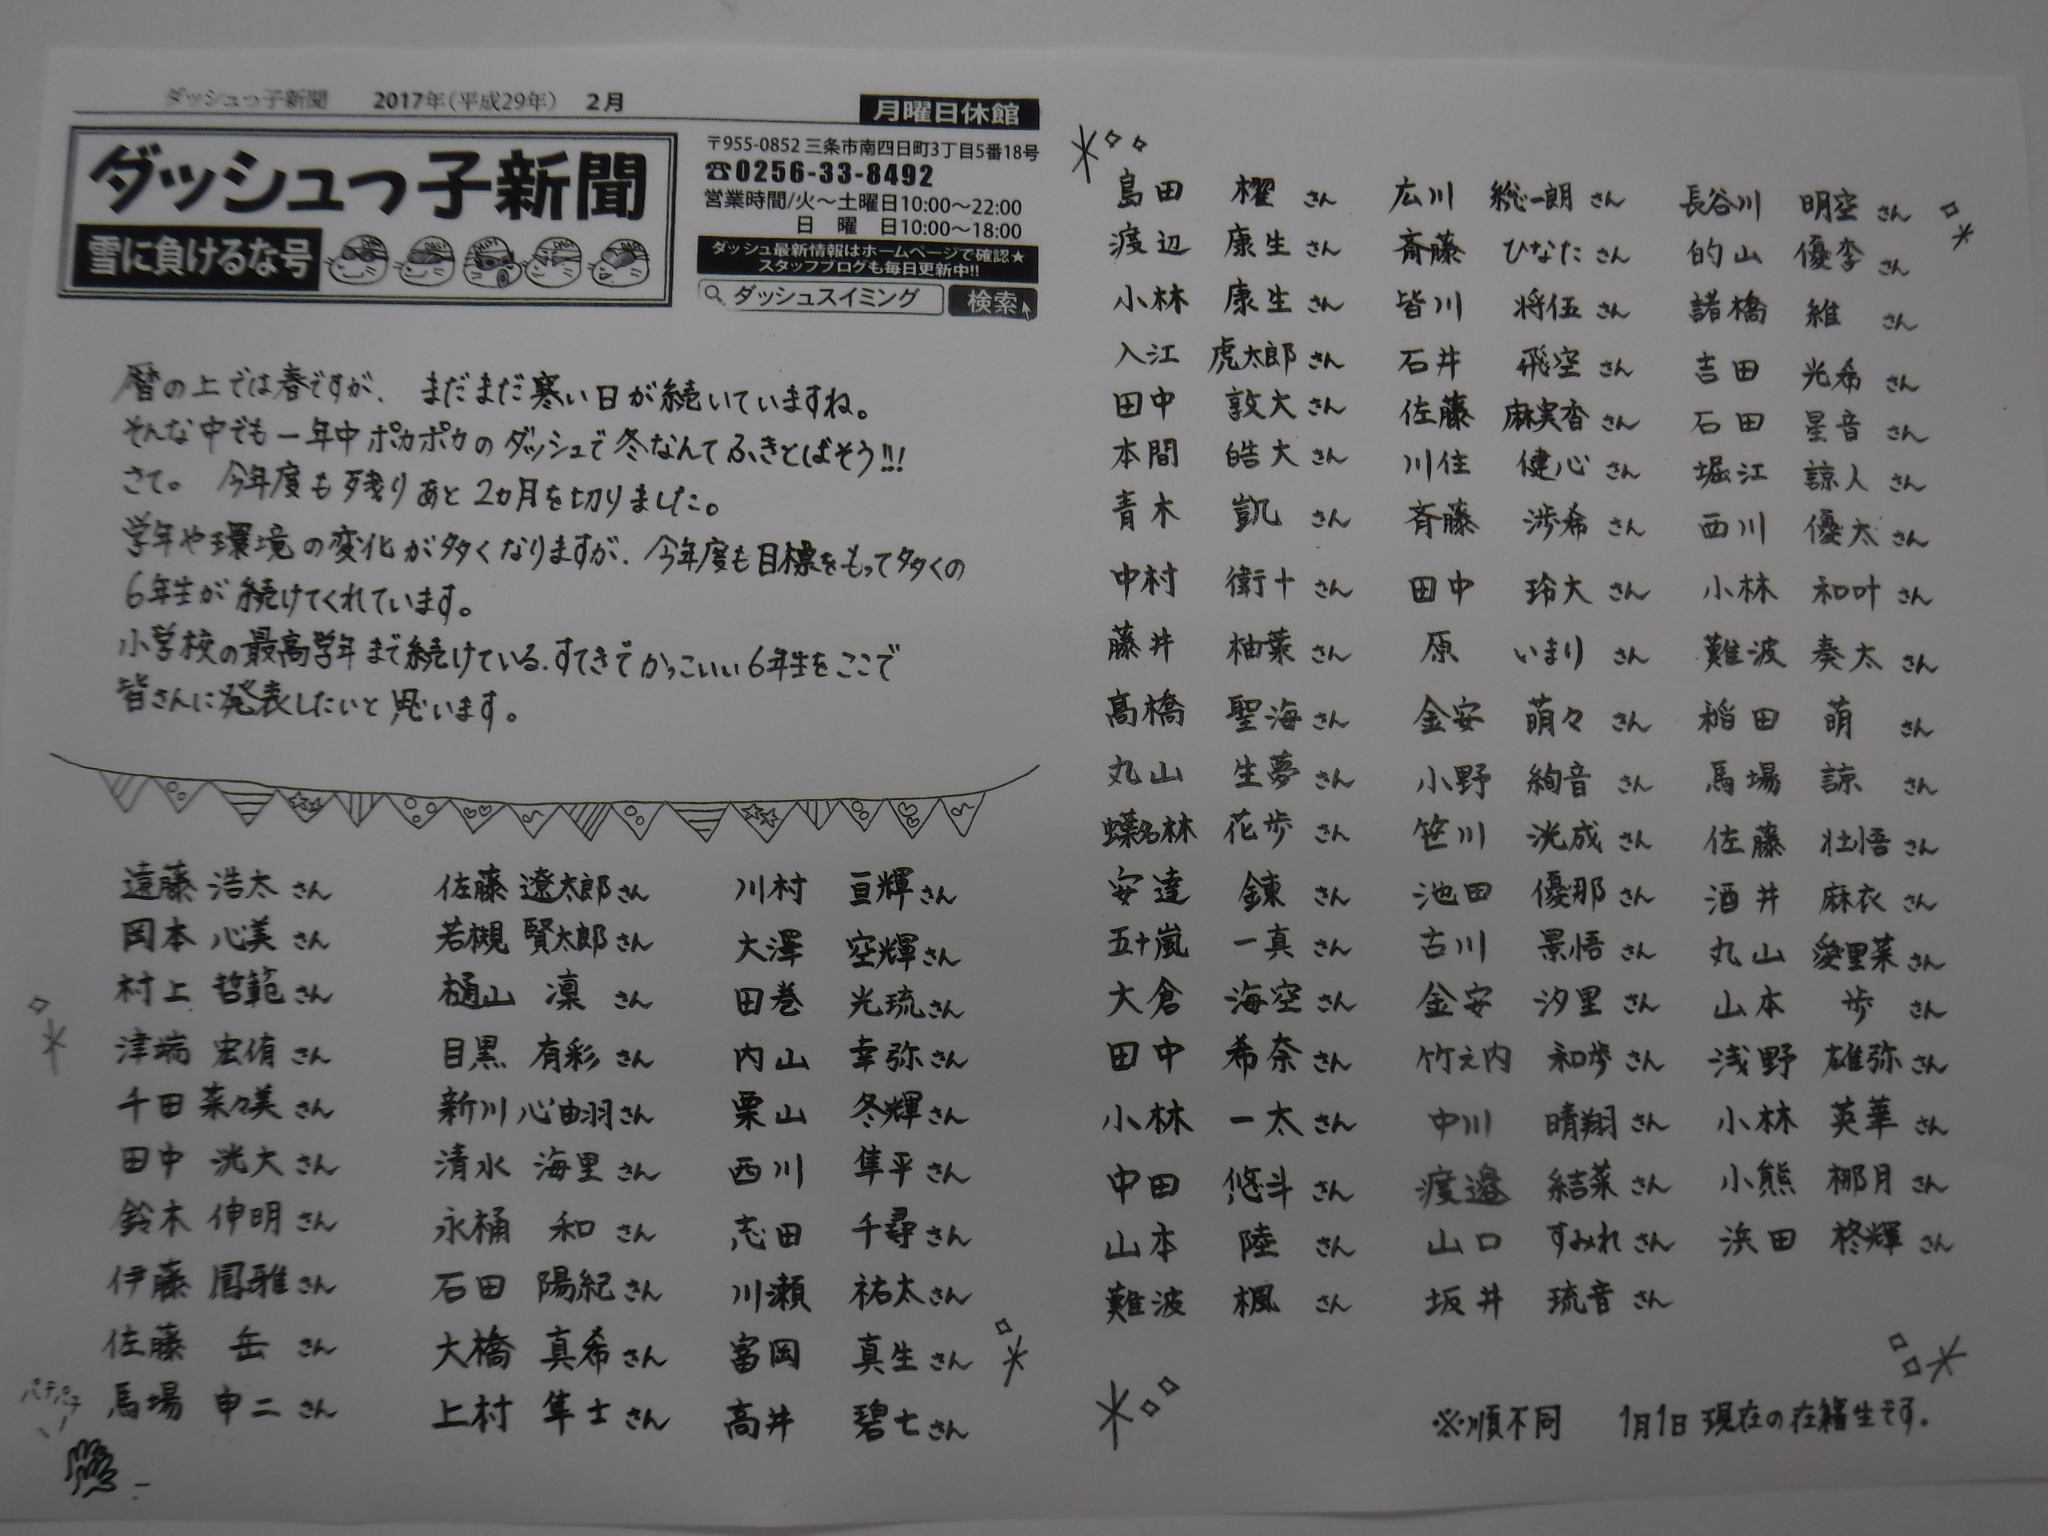 ダッシュっ子新聞 2017年(平成29年) 2月
月曜日休館
ダッシュっ子新聞
雪に負けるな号
〒955-0852 三条市南四日町3丁目5番18号
☎0256-33-8492
営業時間/火～土曜日10:00～22:00
日 曜 日10:00～18:00
ダッシュ最新情報はホームページで確認★
スタッフブログも毎日更新中!!
ダッシュスイミング 検索
暦の上では春ですが、まだまだ寒い日が続いていますね。
そんな中でも一年中ポカポカのダッシュで冬なんてふきとばそう!!!
さて。 今年度も残りあと2カ月を切りました。
学年や環境の変化が多くなりますが、今年度も目標をもって多くの
6年生が続けてくれています。
小学校の最高学年まで続けている、すてきでかっこいい6年生をここで
皆さんに発表したいと思います。
遠藤 浩太さん 佐藤 遼太郎さん 川村 亘輝さん
岡本 心美さん 若槻 賢太郎さん 大澤 空輝さん
村上 哲範さん 樋山 凜さん 田巻 光琉さん
津端 宏侑さん 目黒 有彩さん 内山 幸弥さん
千田 菜々美さん 新川 心由羽さん 栗山 冬輝さん
田中 洸大さん 清水 海里さん 西川 隼平さん
鈴木 伸明さん 永桶 和さん 志田 千尋さん
伊藤 鳳雅さん 石田 陽紀さん 川瀬 祐太さん
佐藤 岳さん 大橋 真希さん 富岡 真生さん
馬場 申二さん 上村 隼士さん 高井 碧七さん
パチパチ
島田 櫂さん 広川 総一朗さん 長谷川 明空さん
渡辺 康生さん 斉藤 ひなたさん 的山 優李さん
小林 康生さん 皆川 将伍さん 諸橋 維さん
入江 虎太郎さん 石井 飛空さん 吉田 光希さん
田中 敦大さん 佐藤 麻実香さん 石田 星音さん
本間 皓大さん 川住 健心さん 堀江 諒人さん
青木 凱さん 斉藤 渉希さん 西川 優太さん
中村 衛十さん 田中 玲大さん 小林 和叶さん
藤井 柚葉さん 原 いまりさん 難波 奏太さん
高橋 聖海さん 金安 萌々さん 稲田 萌さん
丸山 生夢さん 小野 絢音さん 馬場 諒さん
蝶名林 花歩さん 笹川 洸成さん 佐藤 壮悟さん
安達 錬さん 池田 優那さん 酒井 麻衣さん
五十嵐 一真さん 古川 景悟さん 丸山 愛里菜さん
大倉 海空さん 金安 汐里さん 山本 歩さん
田中 希奈さん 竹之内 和歩さん 浅野 雄弥さん
小林 一太さん 中川 晴翔さん 小林 英華さん
中田 悠斗さん 渡邉 結菜さん 小熊 梛月さん
山本 陸さん 山口 すみれさん 浜田 柊輝さん
難波 楓さん 坂井 琉音さん
※順不同 1月1日現在の在籍生です。